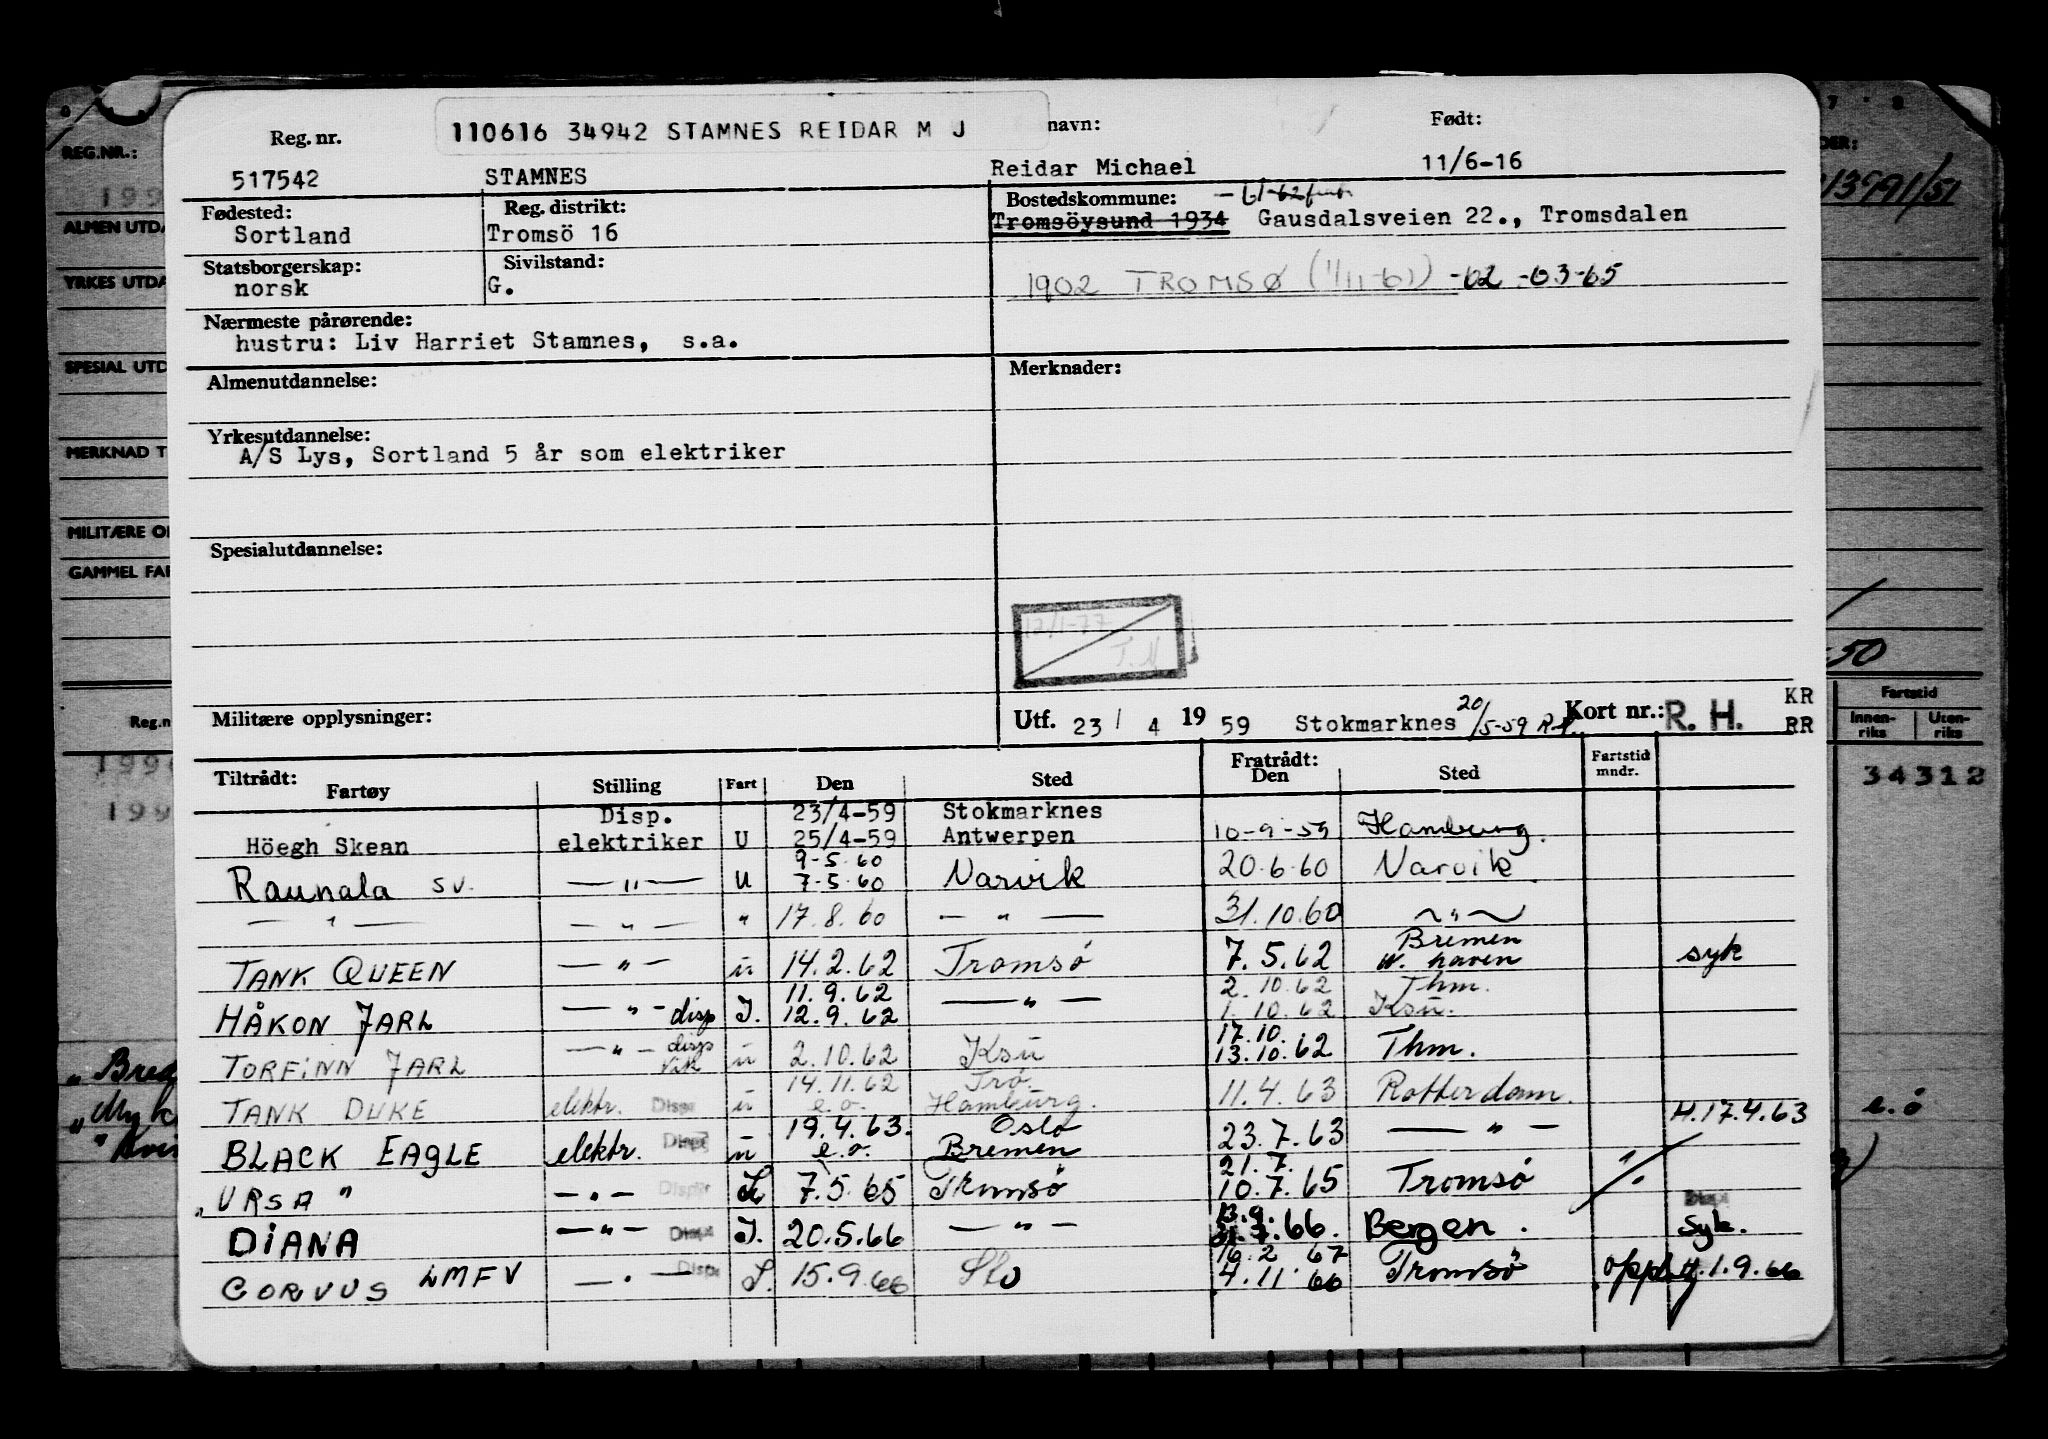 Reg. nr.
110616 34942 STAMNES REIDAR M J
navn:
Født:
517542 STAMNES Reidar Michael 11/6-16
Fødested:
Reg. distrikt:
Bostedskommune:
Sortland
Tromsö 16
Tromsöysund 1934 Gausdalsveien 22., Tromsdalen
Statsborgerskap:
Sivilstand:
norsk
G.
1902 TROMSØ (1/11-61) -62 -63-65
Nærmeste pårørende:
hustru: Liv Harriet Stamnes, s.a.
Almenutdannelse:
Merknader:
Yrkesutdannelse:
A/S Lys, Sortland 5 år som elektriker
Spesialutdannelse:
12/1-77
T.M
Militære opplysninger:
Utf. 23/ 4 19 59 Stokmarknes 20/5-59 Kort nr.: R. H. KR RR
Tiltrådt: Fratrådt:
Fartøy Stilling Fart Den Sted Den Sted Fartstid mndr.
Disp. 23/4-59 Stokmarknes
Höegh Skean elektriker U 25/4-59 Antwerpen 10-9-59 Hamburg.
9-5.60
Raunala SV. —"— U 7-5.60 Narvik 20.6.60 Narvik
— " — — " — " 17.8.60 — " — 31.10.60 — " —
Bremen
TANK QUEEN — " — u 14.2.62 Tromsö 7.5.62 W. haven syk
11.9.62 2.10.62 Thm.
HÅKON JARL — " — disp I. 12.9.62 — " — 1.10.62 Ksu.
disp 17.10.
TORFINN JARL — " — vik u 2.10.62 Ksu 13.10.62 Thm.
14.11.62 Trø.
TANK DUKE elektr. Disp u e.o. Hamburg. 11.4.63 Rotterdam.
19.4.63. Oslo H.17.4.63
BLACK EAGLE elektr. Disp u e.o. Bremen 23.7.63 — " —
21.7.
"URSA" — " — Disp 7.5.65 Tromsö 10.7.65 Tromsö
13.9.
DIANA — " — Disp I. 20.5.66 — " — .66. Bergen. Syk.
16.2 67
CORVUS LMFV — " — Disp 15.9.66 Slo 4.11.66 Tromsö 1.9.66
REG.NR.:
199
ALMEN UTDA
YRKES UTDA
SPESIAL UTD
MERKNAD T
MILITÆRE O
GAMMEL FA
Reg.n
199
199
7 8
DER:
13991/51
-50
Fartstid
Innen-riks Uten-riks
34312
e.ö